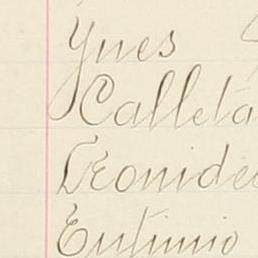 Ynes
Calleta
Leonide
Eutimio